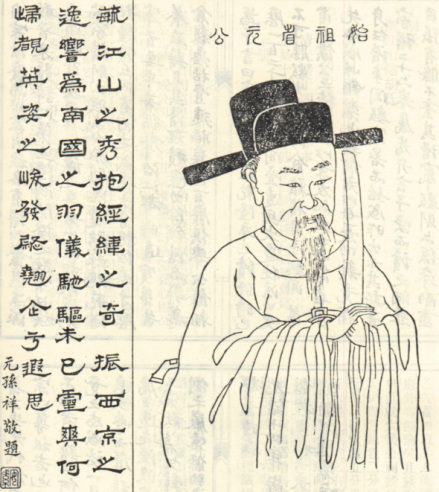 始祖耆元公
毓江山之秀抱經緯之奇振西京之
逸響為南國之羽儀馳驅未已靈爽何
歸覩英姿之峻發殷翹企乎遐思
元孫祥敬題